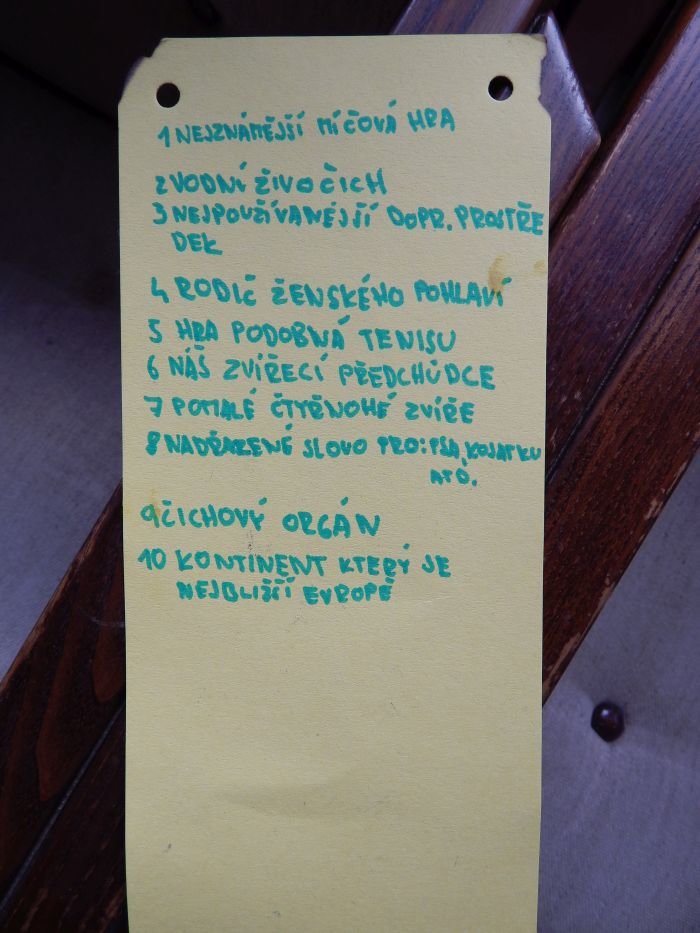 1 NEJZNÁMĚJŠÍ MÍČOVÁ HRA
2 VODNÍ ŽIVOČICH
3 NEJPOUŽÍVANĚJŠÍ DOPR. PROSTŘE
DEK
4 RODIČ ŽENSKÉHO POHLAVÍ
5 HRA PODOBNÁ TENISU
6 NÁŠ ZVÍŘECÍ PŘEDCHŮDCE
7 POMALÉ ČTYŘNOHÉ ZVÍŘE
8 NADŘAZENÉ SLOVO PRO: PSA, KOSATKU
ATD.
9 ČICHOVÝ ORGÁN
10 KONTINENT KTERÝ JE
NEJBLIŽŠÍ EVROPĚ